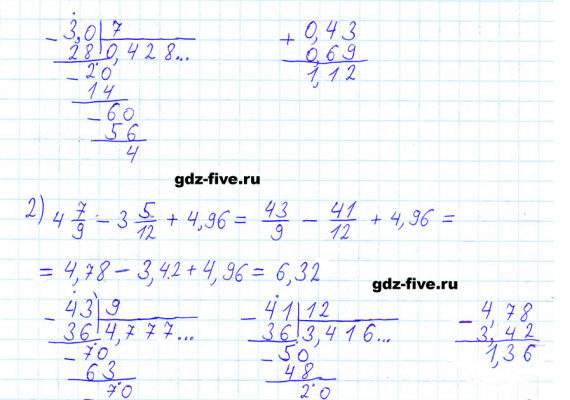 - 3,0 | 7
28 | 0,428...
- 20
14
- 60
56
4
+ 0,43
0,69
1,12
gdz-five.ru
2) 4 7/9 - 3 5/12 + 4,96 = 43/9 - 41/12 + 4,96 =
= 4,78 - 3,42 + 4,96 = 6,32
gdz-five.ru
- 43 | 9
36 | 4,777...
- 70
63
70
- 41 | 12
36 | 3,416...
- 50
48
20
- 4,78
3,42
1,36